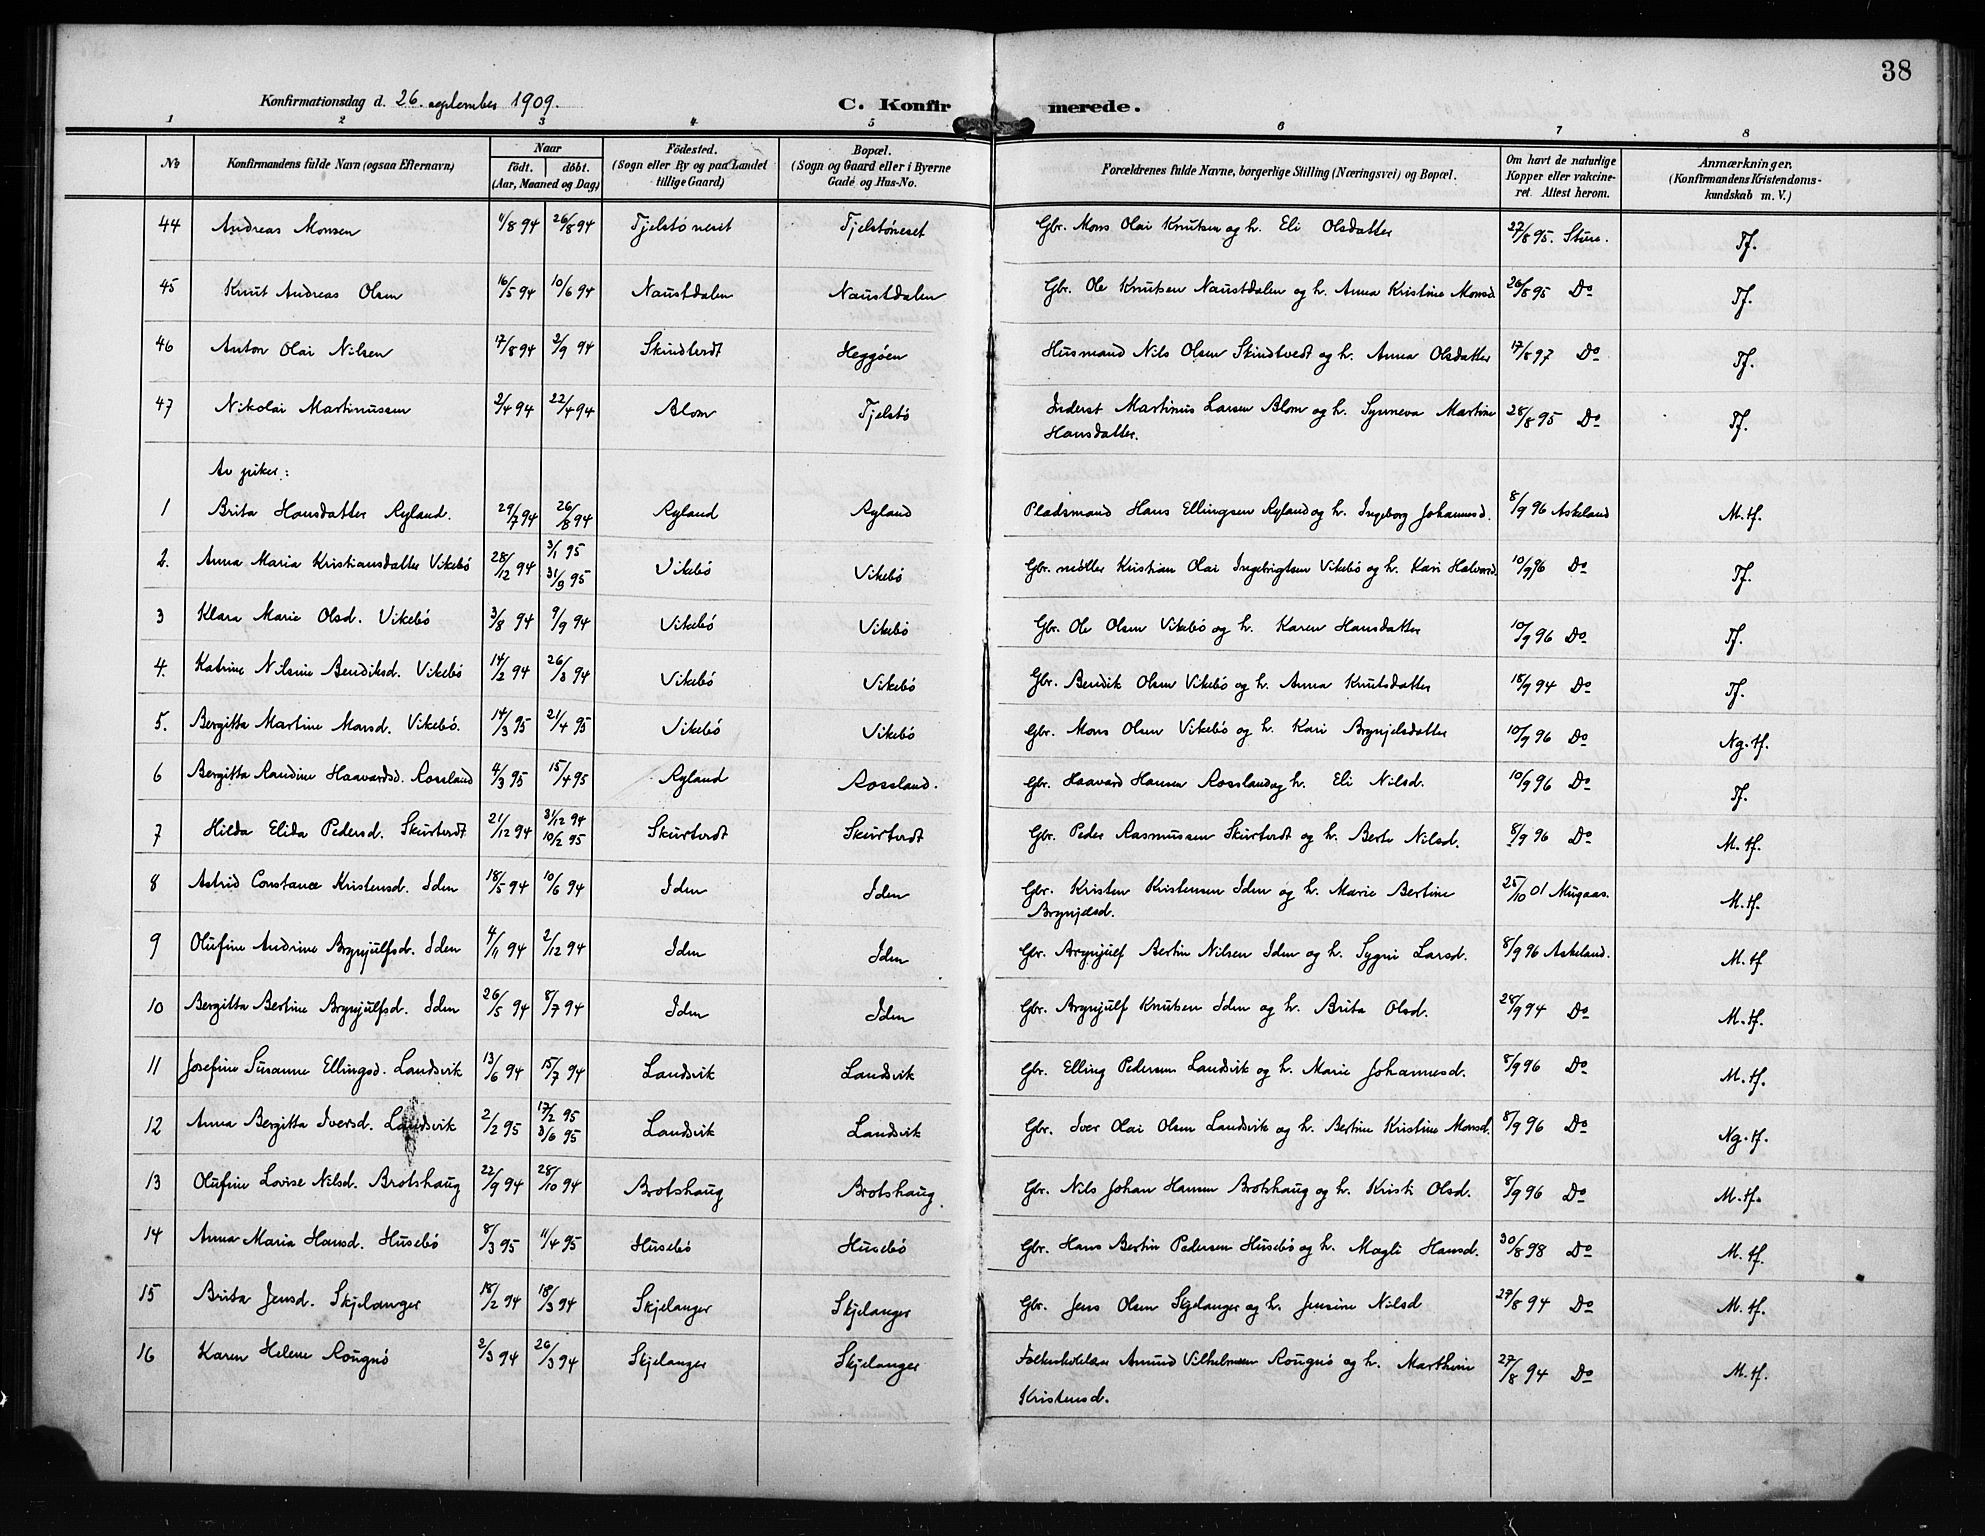 38
Konfirmationsdag d. 26. september 1909.
C. Konfirmerede.
1 2 3 4 5 6 7 8
No
Konfirmandens fulde Navn (ogsaa Efternavn)
Naar
födt. döbt.
(Aar, Maaned og Dag)
Födested.
(Sogn eller By og paa Landet
tillige Gaard)
Bopæl.
(Sogn og Gaard eller i Byerne
Gade og Hus-No.
Forældrenes fulde Navne, borgerlige Stilling (Næringsvei) og Bopæl.
Om havt de naturlige
Kopper eller vakcine-
ret. Attest herom.
Anmærkninger.
(Konfirmandens Kristendoms-
kundskab m. V.)
44 Andreas Monsen 1/8 94 26/8 94 Tjelstöneset Tjelstöneset Gbr. Mons Olai Knutsen og h. Eli Olsdatter 27/8 95. Sture. Tf.
45 Knut Andreas Olsen 16/5 94 10/6 94 Naustdalen Naustdalen Gbr. Ole Knutsen Naustdalen og h. Anna Kristine Monsd 26/8 95 Do Tf.
46 Anton Olai Nilsen 17/8 94 2/9 94 Skindtvedt Heggöen Husmand Nils Olsen Skindtvedt og h. Anna Olsdatter 17/8 97 Do Tf.
47 Nikolai Martinussen 2/4 94 22/4 94 Blom Tjelstö Inderst Martinus Larsen Blom og h. Synneva Martine 28/8 95 Do Tf.
Hansdatter.
Av piker:
1 Brita Hansdatter Ryland. 29/7 94 26/8 94 Ryland Ryland Pladsmand Hans Ellingsen Ryland og h. Ingeborg Johannesd. 8/9 96 Askeland M.tf.
2. Anna Maria Kristiansdatter Vikebö 28/12 94 3/1 95 31/3 95 Vikebö Vikebö Gbr. möller Kristian Olai Ingebrigtsen Vikebö og h. Kari Halvorsd. 10/9 96 Do Tf.
3 Klara Marie Olsd. Vikebö 3/8 94 9/9 94 Vikebö Vikebö Gbr. Ole Olsen Vikebö og h. Karen Hansdatter 10/9 96 Do Tf.
4. Katrine Nilsine Bendiksd. Vikebö 14/2 94 26/3 94 Vikebö Vikebö Gbr. Bendik Olsen Vikebö og h. Anna Knutsdatter 18/9 94 Do Tf.
5. Bergitta Martine Monsd. Vikebö. 14/3 95 21/4 95 Vikebö Vikebö Gbr. Mons Olsen Vikebö og h. Kari Brynjelsdatter 10/9 96 Do Ng.tf.
6 Bergitta Randine Haavardsd. Rossland 4/3 95 15/4 95 Ryland Rossland. Gbr. Haavard Hansen Rossland og h. Eli Nilsd. 10/9 96 Do Tf.
7 Hilda Elida Pedersd. Skurtvedt 21/12 94 31/12 94 10/2 95 Skurtvedt Skurtvedt Gbr. Peder Rasmussen Skurtvedt og h. Berte Nilsd. 8/9 96 Do M.tf.
8 Astrid Constance Kristensd. Iden 18/5 94 10/6 94 Iden Iden Gbr. Kristen Kristensen Iden og h. Marie Bertine 25/10 01 Mugaas. M.tf.
Brynjelsd.
9 Olufine Andrine Brynjulfsd. Iden 4/11 94 2/12 94 Iden Iden Gbr. Brynjulf Bertin Nilsen Iden og h. Sygni Larsd. 8/9 96 Askeland. M.tf
10 Bergitta Bertine Brynjulfsd. Iden 26/5 94 8/7 94 Iden Iden Gbr. Brynjulf Knutsen Iden og h. Brita Olsd. 28/9 94 Do M.tf.
11 Josefine Susanne Ellingsd. Landsvik 13/6 94 15/7 94 Landsvik Landsvik Gbr. Elling Pedersen Landsvik og h. Marie Johannesd. 8/9 96 Do M.tf.
12 Anna Bergitta Iversd. Landsvik 2/2 95 17/2 95 3/6 95 Landsvik Landsvik Gbr. Iver Olai Olsen Landsvik og h. Bertine Kristine Monsd. 8/9 96 Do Ng.tf.
13 Olufine Lovise Nilsd. Brotshaug 22/9 94 28/10 94 Brotshaug Brotshaug. Gbr. Nils Johan Hansen Brotshaug og h. Kristi Olsd. 8/9 96 Do M.tf.
14 Anna Maria Hansd. Husebö 8/3 95 11/4 95 Husebö Husebö Gbr. Hans Bertin Pedersen Husebö og h. Magli Hansd. 30/8 98 Do M.tf.
15 Brita Jensd. Skjelanger 18/2 94 18/3 94 Skjelanger Skjelanger Gbr. Jens Olsen Skjelanger og h. Jensine Nilsd 27/8 94 Do M.tf.
16 Karen Helene Rougnö 2/3 94 26/3 94 Skjelanger Skjelanger Folkeskolelær Amund Vilhelmsen Rougnö og h. Marthine 27/8 94 Do M.tf.
Kristensd.